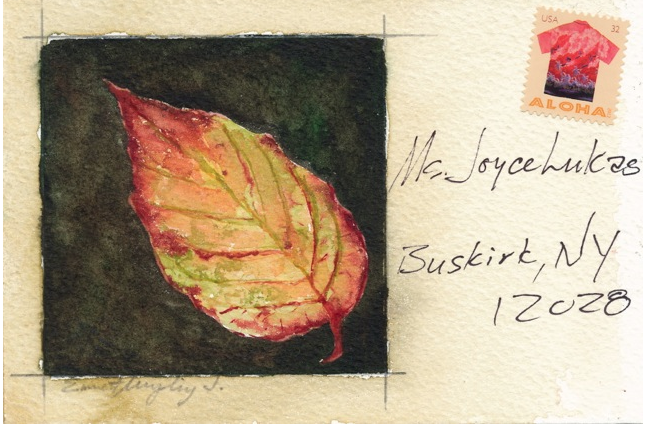 USA 32
ALOHA!
Ms. Joyce Lukas
Buskirk, NY
12028